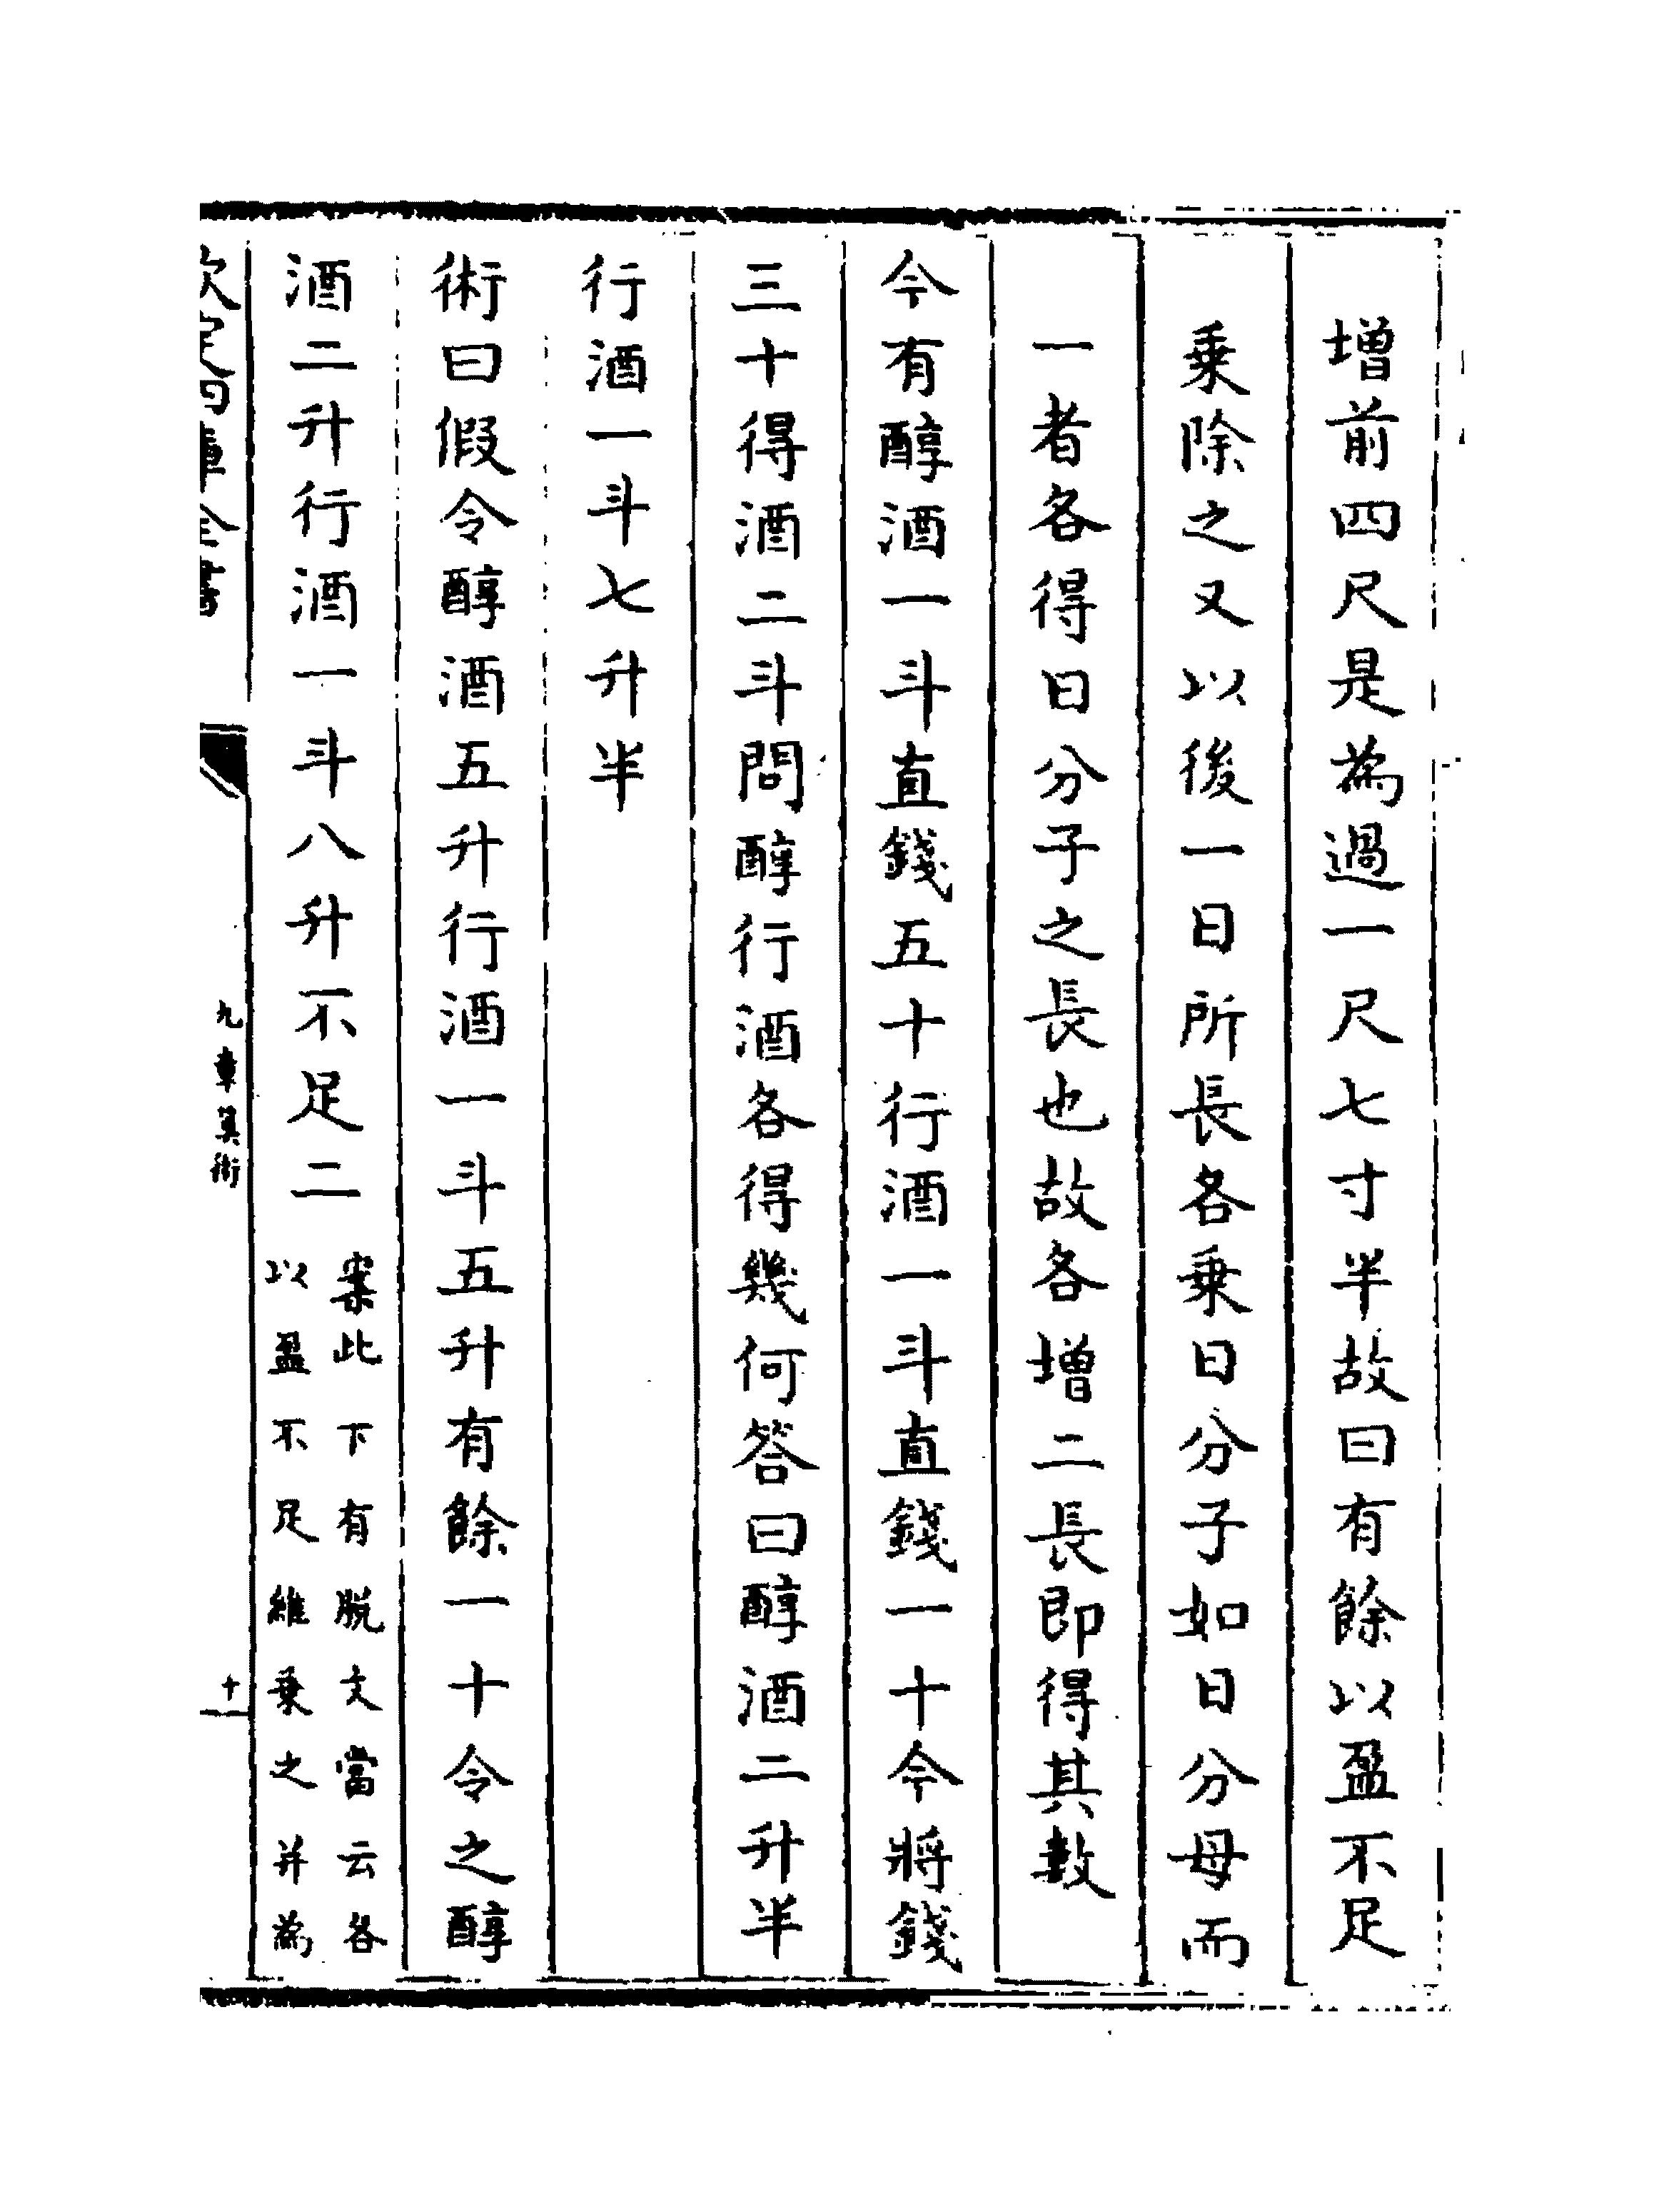 增前四尺是為過一尺七寸半故曰有餘以盈不足
乗除之又以後一日所長各乗日分子如日分母而
一者各得日分子之長也故各增二長即得其數
今有醇酒一斗直錢五十行酒一斗直錢一十今將錢
三十得酒二斗問醇行酒各得幾何答曰醇酒二升半
行酒一斗七升半
術曰假令醇酒五升行酒一斗五升有餘一十令之醇
酒二升行酒一斗八升不足二
案此下有脱文當云各
以盈不足維乗之并為
欽定四庫全書
九章算術
十一